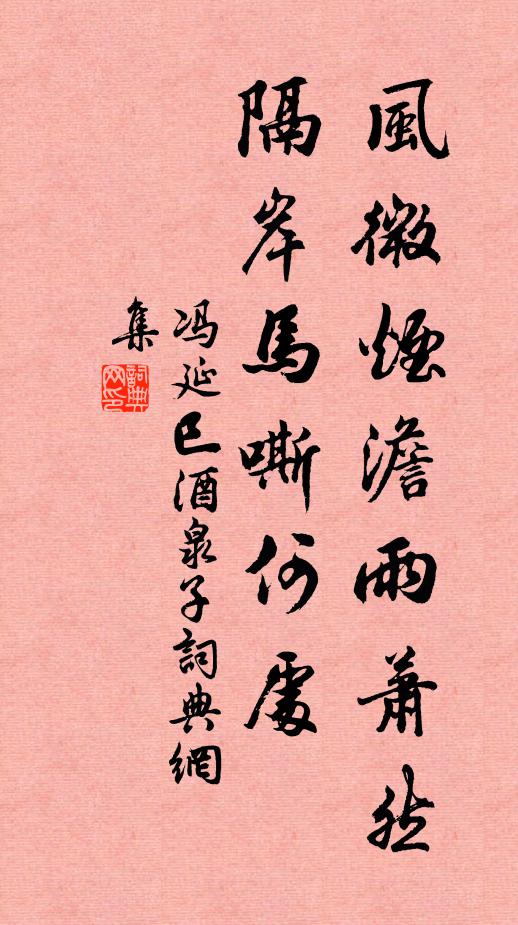 風微煙澹雨蕭然
隔岸馬嘶何處
冯延巳酒泉子詞典網
集
詞典网印